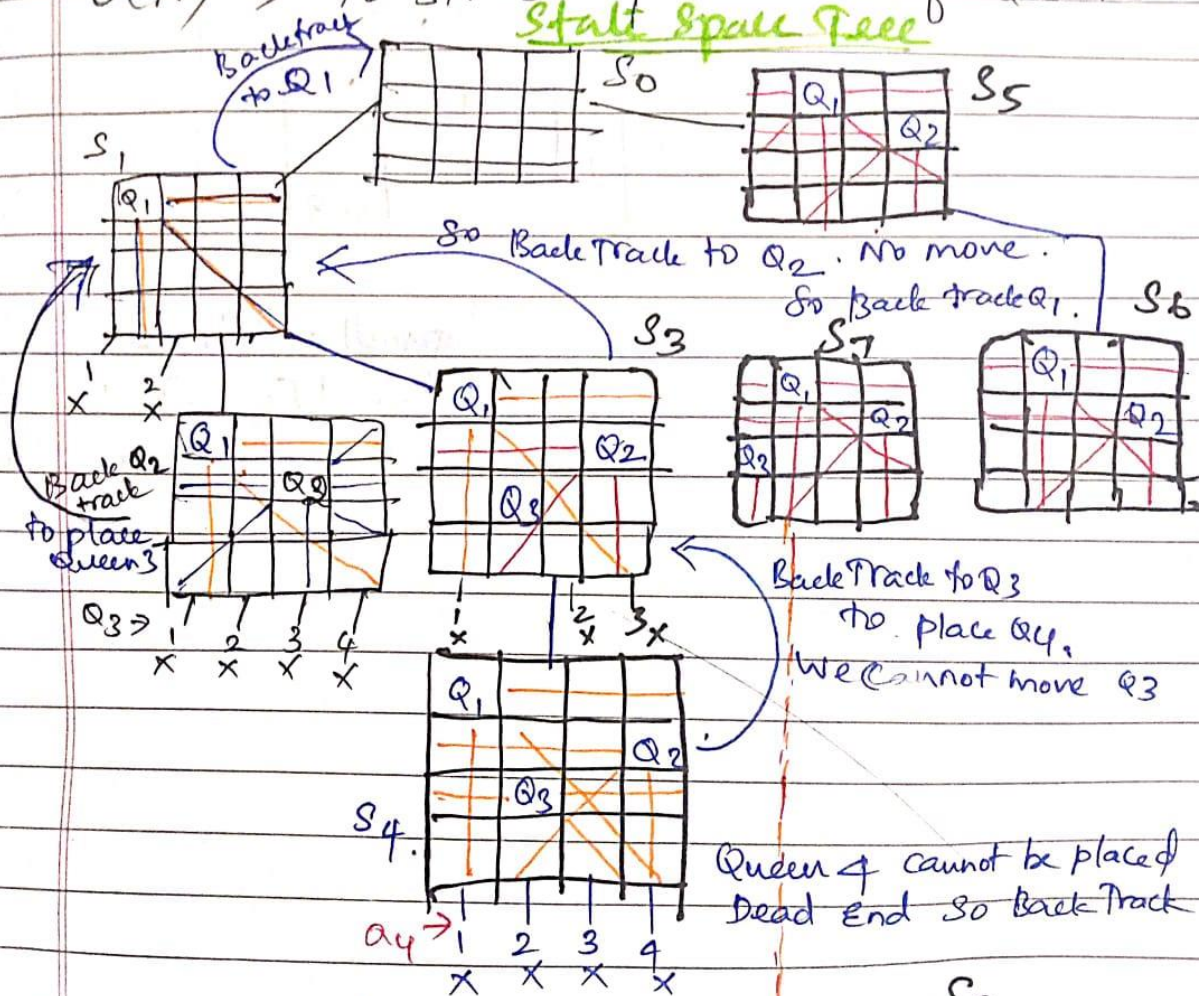 State Space Tree
Backtrack
to Q1.
S0
S5
Q1
Q2
S1
Q1
So Back Track to Q2. No move.
So Back track Q1.
1 2
x x
S3
Q1
Q2
Q3
S7
Q1
Q2
Q3
S6
Q1
Q2
Q1
Q2
Back Q2
track
to place
Queen3
Q3 → 1 2 3 4
x x x x
1 2 3
x x x
Back Track to Q3
to place Q4.
We Cannot move Q3
Q1
Q2
Q3
S4.
Queen 4 cannot be placed
Dead End So Back Track
Q4 → 1 2 3 4
x x x x